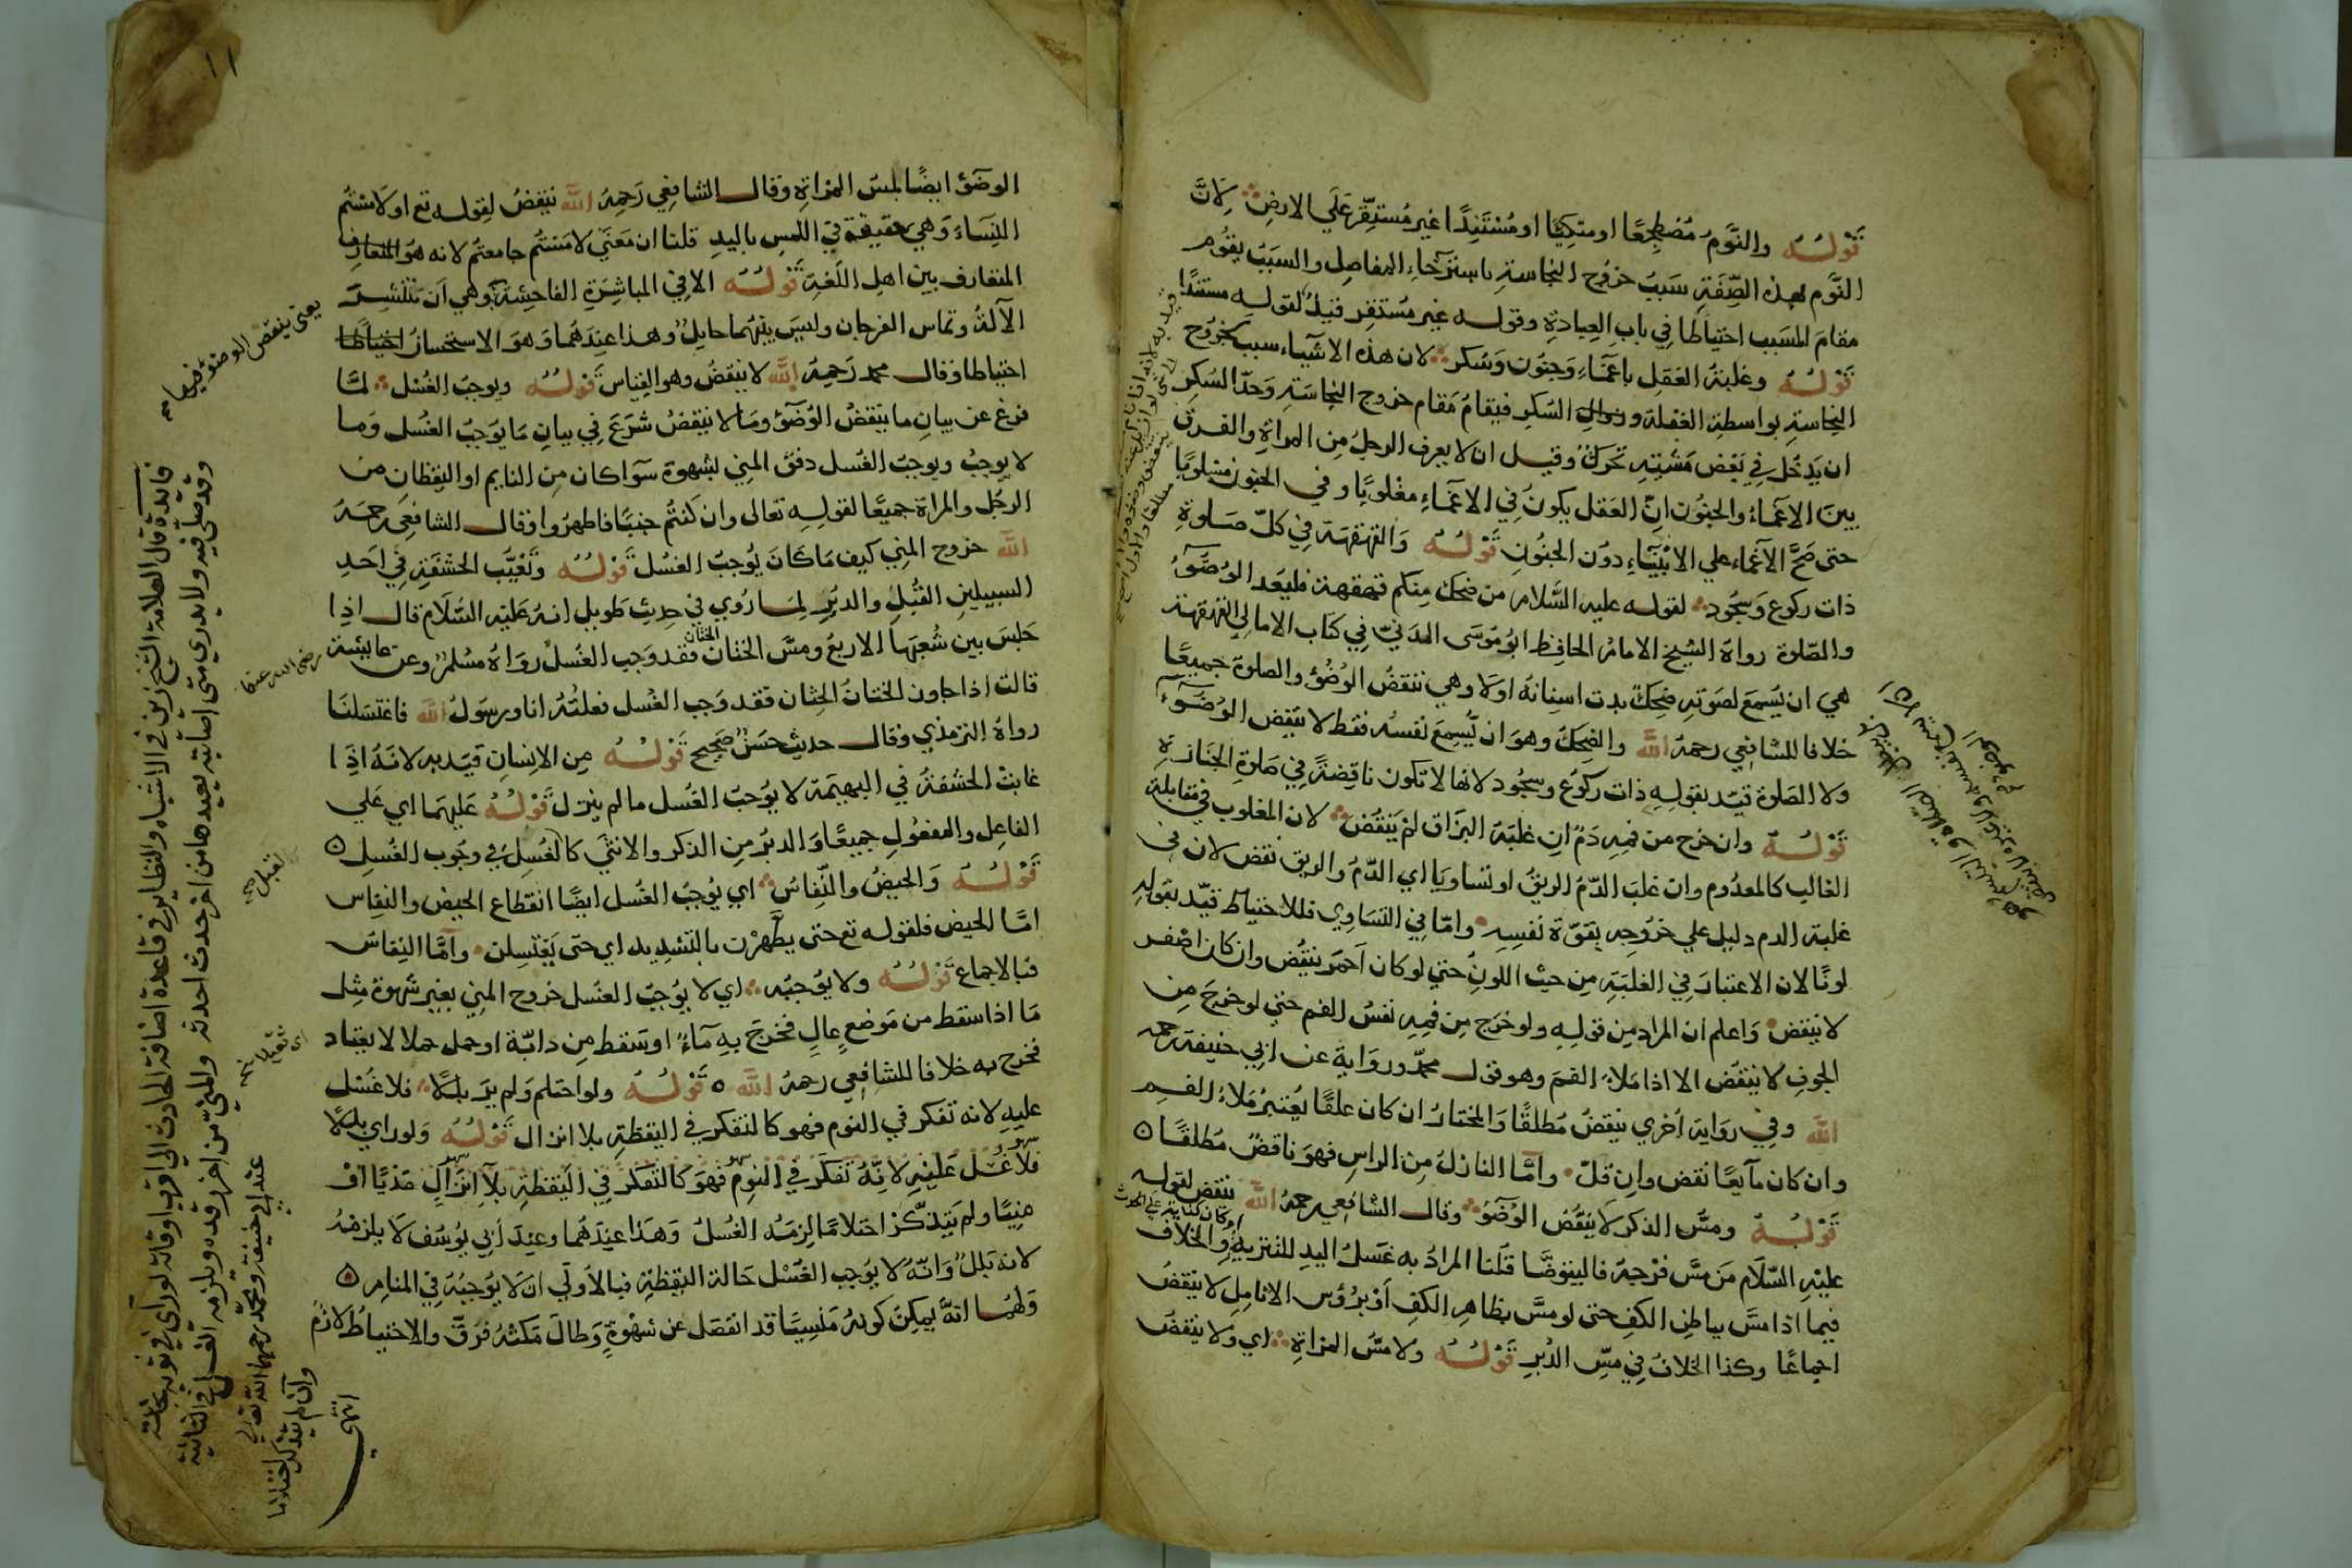 قوله والنوم مضطجعا او متكيا او مستندا غير مستقر علي الارض لان
النوم بهذه الصفة سبب خروج النجاسة باسترخاء المفاصل والسبب يقوم
مقام المسبب احتياطا في باب العبادة وقوله غير مستقر قيد لقوله مستندا
قوله وغلبة العقل باغماء وجنون وسكر لان هذه الاشياء سبب لخروج
النجاسة بواسطة الغفلة وزوال السكر فيقام مقام خروج النجاسة وحد السكر
ان يدخل في بعض مشيته تحرك وقيل ان لا يعرف الرجل من المراة والفرق
بين الاغماء والجنون ان العقل يكون في الاغماء مغلوبا وفي الجنون مسلوبا
حتى صح الاغماء علي الانبياء دون الجنون قوله والقهقهة في كل صلوة
ذات ركوع وسجود لقوله عليه السلام من ضحك منكم قهقهة فليعد الوضوء
والصلوة رواه الشيخ الامام الحافظ ابو موسى المدني في كتاب الامالي القهقهة
هي ان يسمع لصوته ضحك بدت اسنانه اولا وهي تنقض الوضؤ والصلوة جميعا
خلافا للشافعي رحمه الله والضحك وهو ان يسمع نفسه فقط لا ينقض الوضوء
ولا الصلوة قيد بقوله ذات ركوع وسجود لانها لا تكون ناقضة في صلوة الجنازة
قوله وان خرج من فمه دم ان غلبه البزاق لم ينقض لان المغلوب في مقابلة
الغالب كالمعدوم وان غلب الدم الريق او تساويا اي الدم والريق نقض لان في
غلبة الدم دليل علي خروجه بقوة نفسه واما في التساوي فللاحتياط قيد بقوله
لونا لان الاعتبار في الغلبة من حيث اللون حتي لو كان احمر ينقض وان كان اصفر
لا ينقض واعلم ان المراد من قوله ولو خرج من فمه نفس الفم حتي لو خرج من
الجوف لا ينقض الا اذا ملاء الفم وهو قول محمد ورواية عن ابي حنيفة رحمه
الله وفي رواية اخري ينقض مطلقا والمختار ان كان علقا يعتبر ملاء الفم
وان كان مآيعا نقض وان قل واما النازل من الراس فهو ناقض مطلقا ه
قوله ومس الذكر لا ينقض الوضؤ وقال الشافعي رحمه الله ينقض لقوله
عليه السلام من مس فرجه فاليتوضا قلنا المراد به غسل اليد للتنزيه والخلاف
فيما اذا مس بباطن الكف حتى لو مس بظاهر الكف او برؤس الانامل لا ينقض
اجماعا وكذا الخلاف في مس الدبر قوله ولا مس المراة اي ولا ينقض
الوضؤ ايضا لمس المراة وقال الشافعي رحمه الله ينقض لقوله تع اولامستم
النساء وهي حقيقة في اللمس باليد قلنا ان معني لامستم جامعتم لانه هو المتعارف
المتعارف بين اهل اللغة قوله الا في المباشرة الفاحشة وهي ان تنتشر
الآلة وتماس الفرجان وليس بينهما حايل وهذا عندهما وهو الاستحسان احتياطا
احتياطا وقال محمد رحمه الله لا ينقض وهو القياس قوله ويوجب الغسل لما
فرغ عن بيان ما ينقض الوضؤ وما لا ينقض شرع في بيان ما يوجب الغسل وما
لا يوجب ويوجب الغسل دفق المني بشهوة سوآ كان من النايم او اليقظان من
الرجل والمراة جميعا لقوله تعالى وان كنتم جنبا فاطهروا وقال الشافعي رحمه
الله خروج المني كيف ما كان يوجب الغسل قوله وتغيب الحشفة في احد
السبيلين القبل والدبر لما روي في حديث طويل انه عليه السلام قال اذا
جلس بين شعبها الاربع ومس الختان الختان فقد وجب الغسل رواه مسلم وعن عايشة
رضي الله عنها
قالت اذا جاوز الختان الختان فقد وجب الغسل فعلته انا ورسول الله فاغتسلنا
رواه الترمذي وقال حديث حسن صحيح قوله من الانسان قيد به لانه اذا
غابت الحشفة في البهيمة لا يوجب الغسل ما لم ينزل قوله عليهما اي علي
الفاعل والمفعول جميعا والدبر من الذكر والانثي كالغسل في وجوب الغسل ه
قوله والحيض والنفاس اي يوجب الغسل ايضا انقطاع الحيض والنفاس
اما الحيض فلقوله تع حتى يطهرن بالتشديد اي حتى يغتسلن واما النفاس
فبالاجماع قوله ولا يوجبه اي لا يوجب الغسل خروج المني بغير شهوة مثل
ما اذا سقط من موضع عال فخرج به مآء او سقط من دابة او حمل حملا لا يعتاد
فخرج به خلافا للشافعي رحمه الله ه قوله ولو احتلم ولم ير بللا فلا غسل
عليه لانه تفكر في النوم فهو كالتفكر في اليقظة بلا انزال قوله ولو راي بللا
فلا غسل عليه لانه تفكر في النوم فهو كالتفكر في اليقظة بلا انزال مذيا او
منيا ولم يتذكر احتلاما لزمه الغسل وهذا عندهما وعند ابي يوسف لا يلزمه
لانه بلل وانه لا يوجب الغسل حالة اليقظة فبالاولي ان لا يوجبه في المنام ه
ولهما انه يمكن كونه منيا قد انفصل عن شهوة وطال مكثه فرق والاحتياط لازم
يعني ينقض الوضوء فيها
فايدة قال العلامة الشيخ زين في الاشباه والنظاير في قاعدة اضافة الحادث الي اقرب اوقاته لو رآي في ثوبه نجاسة
وقد صلي فيه ولا يدري متى اصابته يعيدها من اخر حدث احدثه والمني من اخر رقده ويلزمه الغسل في الثانية
عند ابي حنيفة ومحمد رحمهما الله تعالى
وان لم يتذكر احتلاما
انتهي